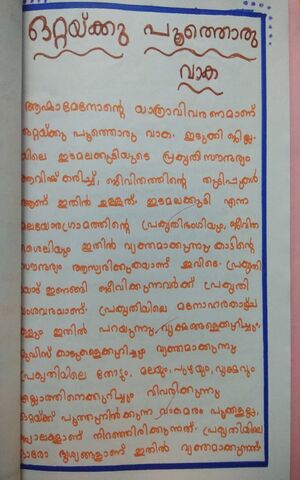 ഒറ്റയ്ക്കു പൂത്തൊരു
വാക
ആഷ്മാമേനോന്റെ യാത്രാവിവരണമാണ്
ഒറ്റയ്ക്കു പൂത്തൊരു വാക. ഇടുക്കി ജില്ല
യിലെ ഇടമലക്കുടിയുടെ പ്രകൃതിസൗന്ദര്യം
ആവിഷ്കരിച്ച്, ജീവിതത്തിന്റെ തുടിപ്പുകൾ
ആണ് ഇതിൽ ഉള്ളത്. ഇടമലക്കുടി എന്ന
മലയോരഗ്രാമത്തിന്റെ പ്രകൃതിഭംഗിയും, ജീവിത
ശൈലിയും ഇതിൽ വ്യക്തമാക്കുന്നു. കാടിന്റെ
സൗന്ദര്യം ആസ്വദിക്കുകയാണ് ഇവിടെ. പ്രകൃതി
യോട് ഇണങ്ങി ജീവിക്കുന്നവർക്ക് പ്രകൃതി
പ്രകൃതിയിലെ മനോഹരകാഴ്ച
കളും ഇതിൽ പറയുന്നു, വൃക്ഷങ്ങളെക്കുറിച്ചും.
കാടുകളെക്കുറിച്ചും വ്യക്തമാക്കുന്നു
പ്രകൃതിയിലെ തോടും, മലയും, പുഴയും, വൃക്ഷവും
എല്ലാത്തിനെക്കുറിച്ചും വിവരിക്കുന്നു
ഒറ്റയ്ക്ക് പൂത്തുനിൽക്കുന്ന വാകമരം പൂക്കളല്ല,
നിറഞ്ഞിരിക്കുന്നത്. പ്രകൃതിയിലെ
ഓരോ ദൃശ്യങ്ങളാണ് ഇതിൽ വ്യക്തമാക്കുന്നത്.